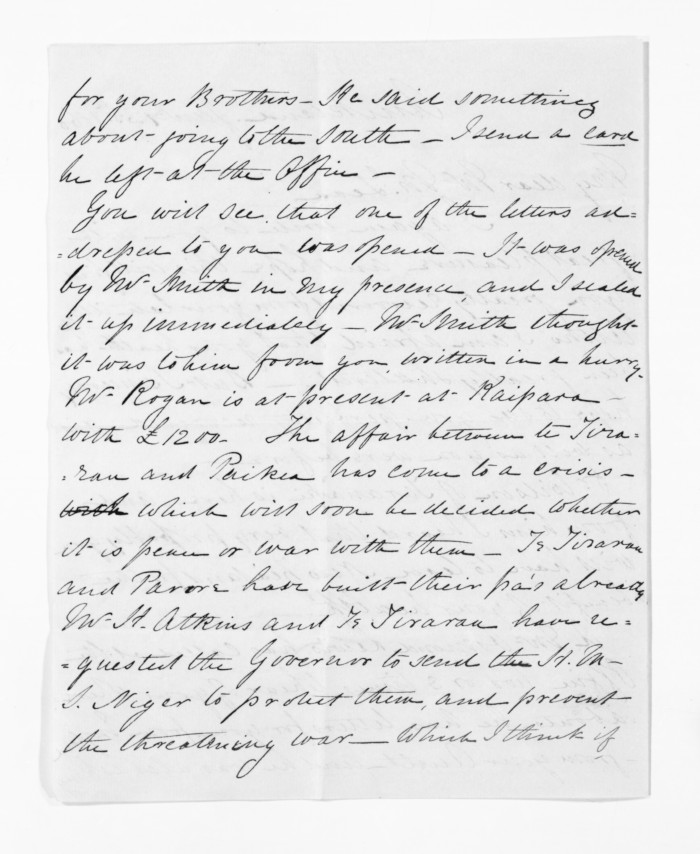 for your Brothers - He said something
about going to the South - I send a card
he left at the Office -
You will see that one of the letters ad=
=dressed to you was opened - It was opened
by Mr Smith in my presence and I sealed
it up immediately - Mr Smith thought
it was to him from you written in a hurry -
Mr Rogan is at present at Kaipara -
with £1200 - The affair between te Tira=
=rau and Paikea has come to a crisis -
with which will soon be decided whether
it is peace or war with them - Te Tirarau
and Parore have built their pa's already
Mr H. Atkins and Te Tirarau have re=
=quested the Governor to send the H. M
S. Niger to protect them, and prevent
the threatening war - Which I think if